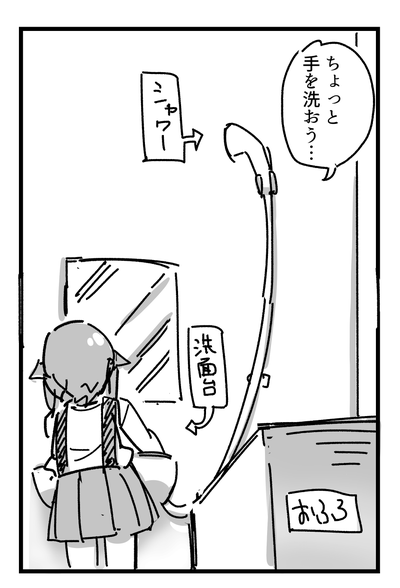 ちょっと
手を洗おう…
シャワー
洗面台
おふろ